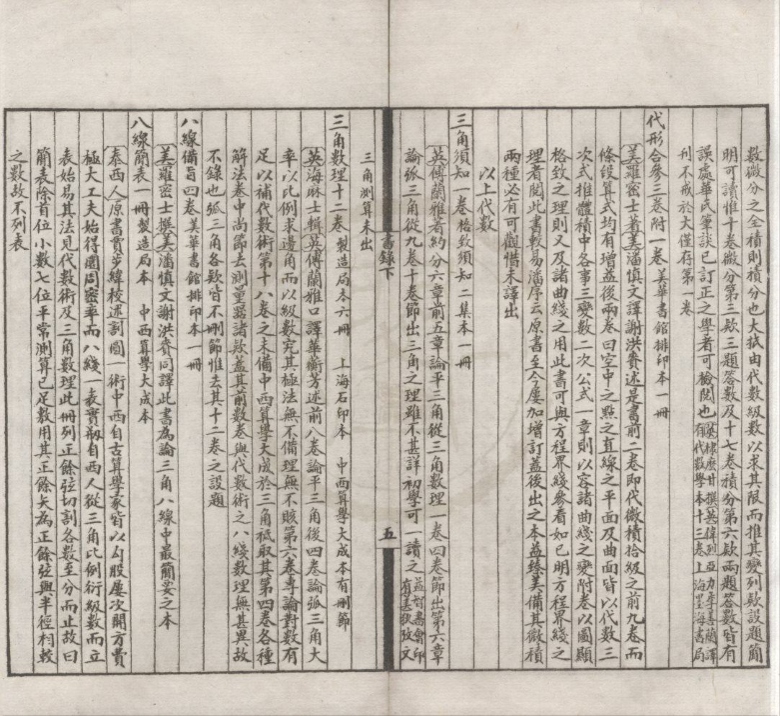 數微分之全積則積分也大抵由代數級數以求其限而推其變列款設題簡
明可讀惟十卷微分第三款三題答數及十七卷積分第六款兩題答數皆有
誤處華氏筆談已訂正之學者可檢閱也
有代數學本十三卷上海墨海書局
刊不戒於火僅存第一卷
代形合參三卷附一卷美華書館排印本一冊
美羅密士著美潘慎文譯謝洪賚述是書前二卷即代微積拾級之前九卷而
條段算式均有增益後兩卷曰空中之點之直線之平面及曲面皆以代數三
次式推體積中各事三變數二次公式一章則以容諸曲綫之變附卷以圖顯
格致之理則又及諸曲綫之用此書可與方程界綫參看如已明方程界綫之
理者閱此書較易潘序云原書至今屢加增訂蓋後出之本益臻美備其微積
兩種必有可觀惜未譯出
以上代數
三角須知一卷格致須知二集本一冊
英傅蘭雅著約分六章前五章論平三角從三角數理一卷四卷節出第六章
論弧三角從九卷十卷節出三角之理雖不甚詳初學可一讀之
益智書會印
書錄下
五
三角測算未出
三角數理十二卷製造局本六冊 上海石印本 中西算學大成本有刪節
英海麻士輯英傅蘭雅口譯華蘅芳述前八卷論平三角後四卷論弧三角大
率以比例求邊角而以級數究其極法無不備理無不賅第六卷專論對數有
足以補代數術第十八卷之未備中西算學大成於三角祗取其第四卷各種
解法卷中尚節去測量器諸款蓋其前數卷與代數術之八綫數理無甚異故
不錄也弧三角各款皆不刪節惟去其十二卷之設題
八線備旨四卷美華書館排印本一冊
美羅密士撰美潘慎文譯謝洪賚同譯此書為論三角八線中最簡要之本
八線簡表一冊製造局本 中西算學大成本
泰西人原書賈步緯校述割圜 術中西自古算學家皆以勾股屢次開方費
極大工夫始得圜周密率而八綫一表實剏自西人從三角比例衍級數而立
表始易其法見代數術及三角數理此冊列正餘弦切割各數至分而止故曰
簡表除首位小數七位平常測算已足數用其正餘矢為正餘弦與半徑相較
之數故不列表